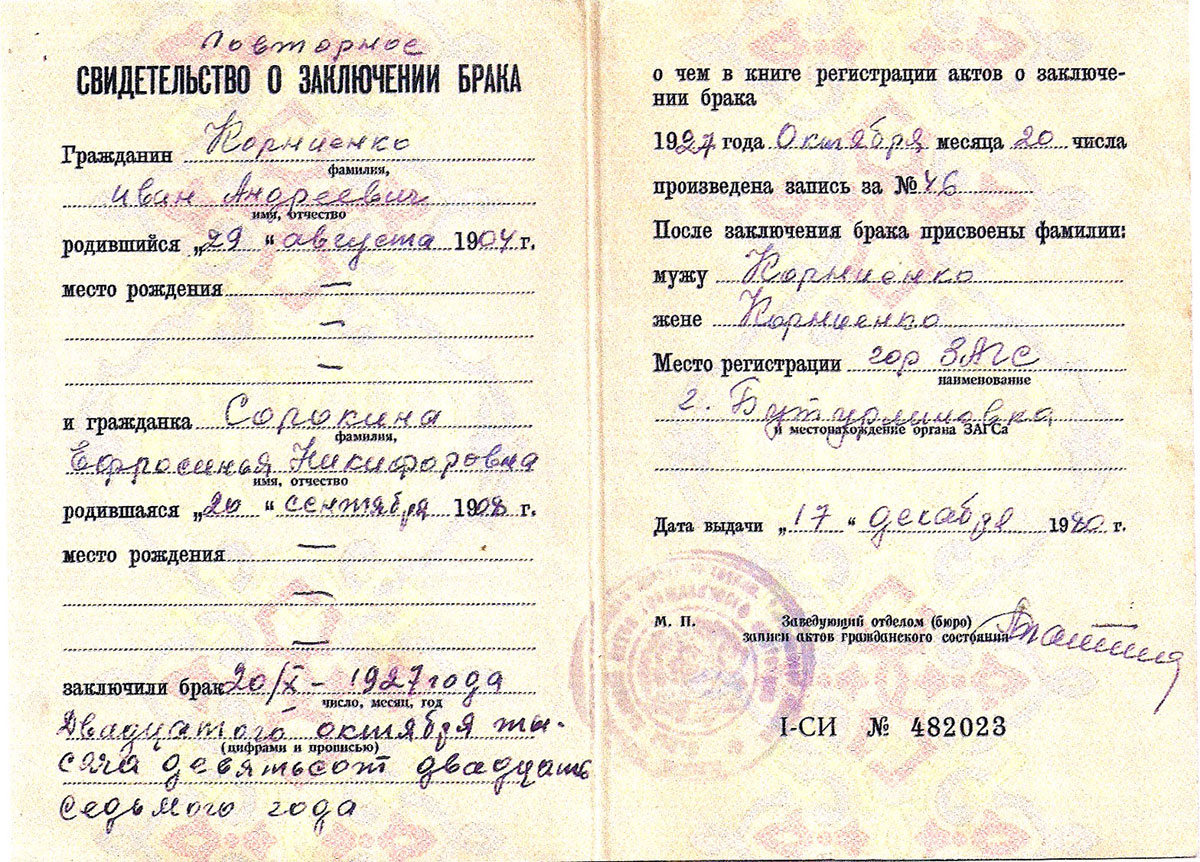 Повторное
СВИДЕТЕЛЬСТВО О ЗАКЛЮЧЕНИИ БРАКА
Гражданин Корниенко
фамилия,
Иван Андреевич
имя, отчество
родившийся „29“ августа 1904 г.
место рождения —
—
—
и гражданка Сорокина
фамилия,
Ефросинья Никифоровна
имя, отчество
родившаяся „20“ сентября 1908 г.
место рождения —
—
—
заключили брак 20/X – 1927 года
число, месяц, год
Двадцатого октября ты-
(цифрами и прописью)
сяча девятьсот двадцать
седьмого года
о чем в книге регистрации актов о заключе-
нии брака
1927 года Октября месяца 20 числа
произведена запись за № 46
После заключения брака присвоены фамилии:
мужу Корниенко
жене Корниенко
Место регистрации гор ЗАГС
наименование
г. Бутурлиновка
и местонахождение органа ЗАГСа
Дата выдачи „17“ декабря 1980 г.
М. П. Заведующий отделом (бюро)
записи актов гражданского состояния
I-СИ № 482023